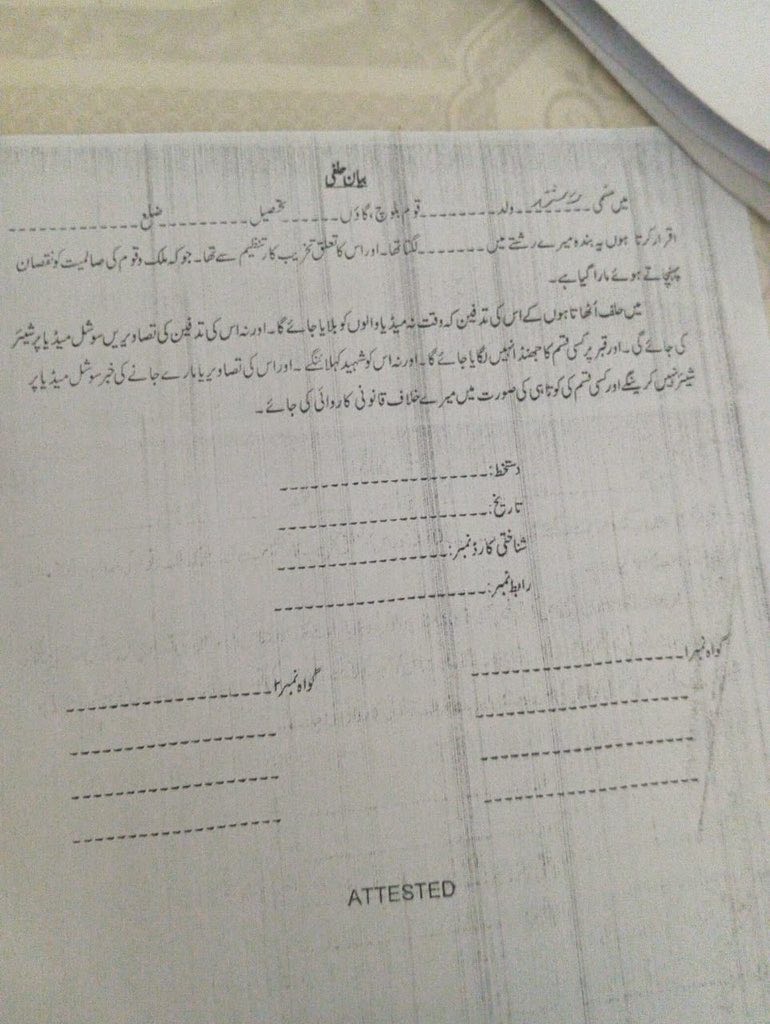 بیان حلفی
میں مسمّی ------- ولد -------- قوم بلوچ، گاؤں ------ تحصیل --------- ضلع -------------
اقرار کرتا ہوں یہ بندہ میرے رشتے میں ------- لگتا تھا۔ اور اس کا تعلق تخریب کار تنظیم سے تھا۔ جو کہ ملک و قوم کی سالمیت کو نقصان
پہنچاتے ہوئے مارا گیا ہے۔
میں حلف اُٹھاتا ہوں کے اس کی تدفین کہ وقت نہ میڈیا والوں کو بلایا جائے گا۔ اور نہ اس کی تدفین کی تصاویریں سوشل میڈیا پر شیئر
کی جائے گی۔ اور قبر پر کسی قسم کا جھنڈا نہیں لگایا جائے گا۔ اور نہ اس کو شہید کہلائنگے۔ اور اس کی تصاویر یا مارے جانے کی خبر سوشل میڈیا پر
شیئر نہیں کرینگے اور کسی قسم کی کوتاہی کی صورت میں میرے خلاف قانونی کاروائی کی جائے۔
دستخط:--------------------
تاریخ:--------------------
شناختی کارڈ نمبر:----------------
رابطہ نمبر:--------------------
گواہ نمبر ۱--------------------
گواہ نمبر ۲--------------------
ATTESTED